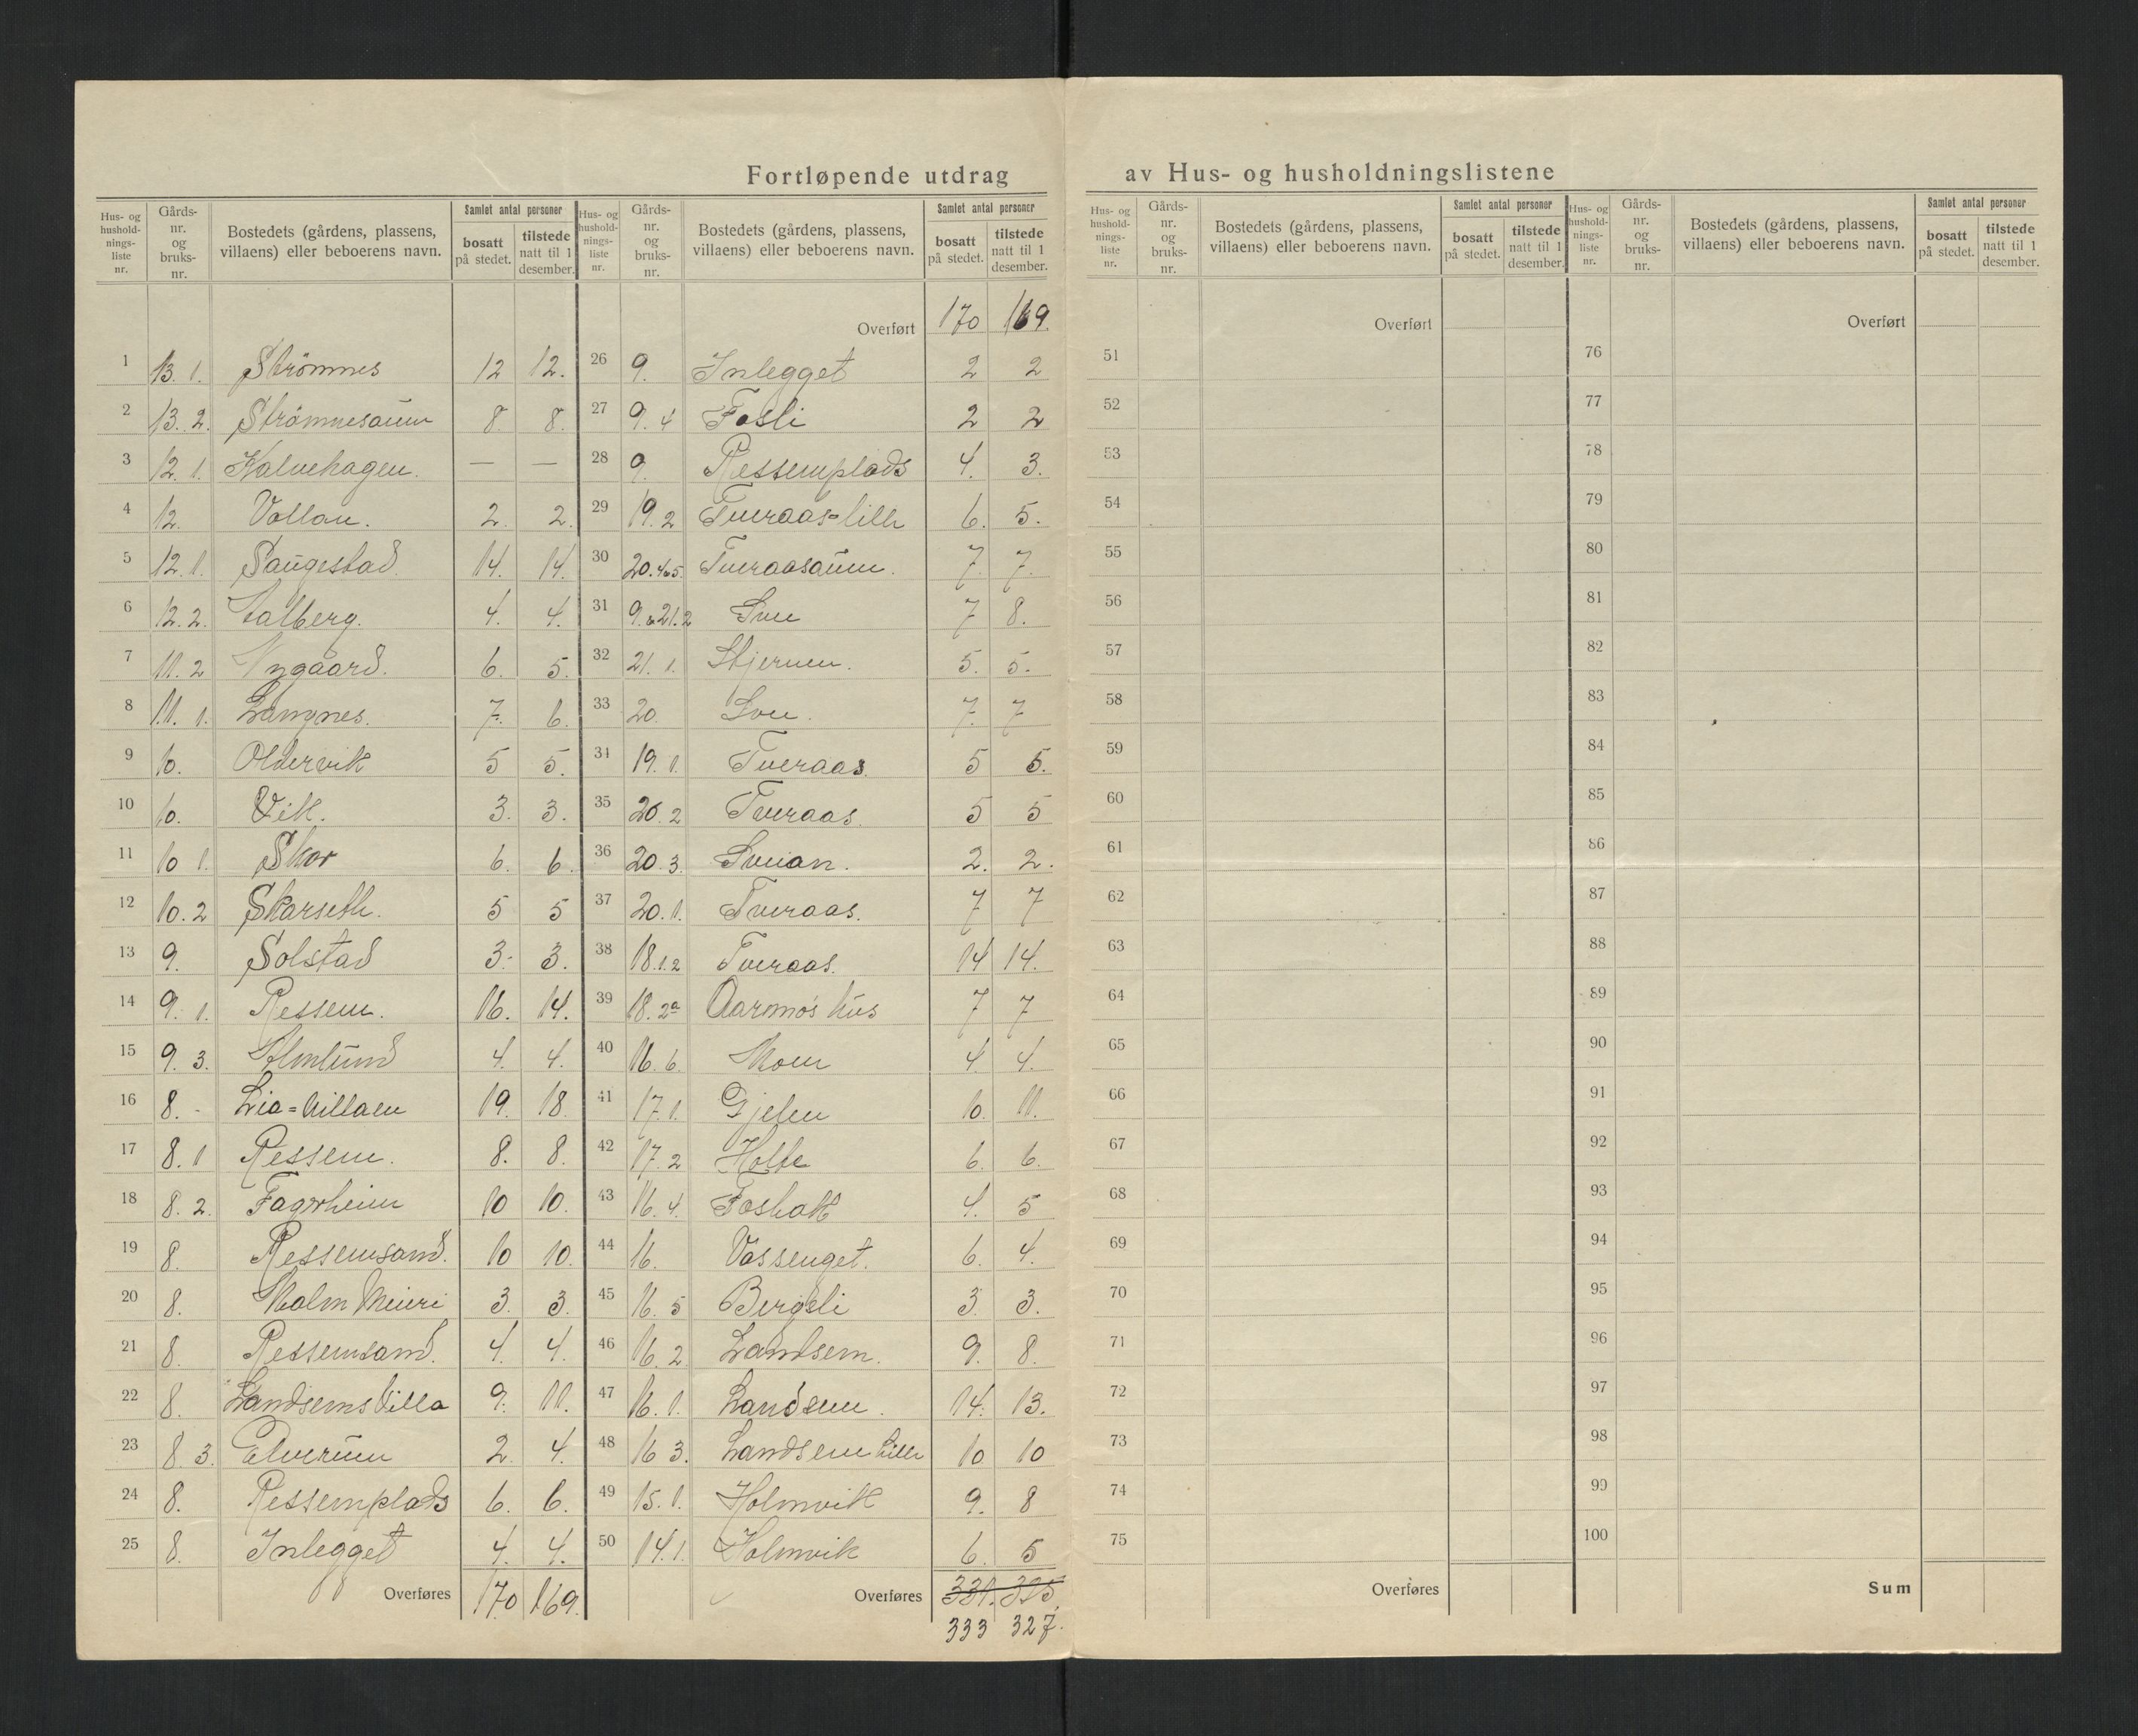 Fortløpende utdrag av Hus- og husholdningslistene
Hus- og hushold-nings-liste nr. Gårds-nr. og bruks-nr. Bostedets (gårdens, plassens, villaens) eller beboerens navn. Samlet antal personer bosatt på stedet. tilstede natt til 1 desember.
1 13. 1. Strömnes 12 12.
2 13. 2. Strömnesaunn 8. 8.
3 12. 1. Kalvehagen. — —
4 12. Vollan. 2. 2.
5 12. 1. Saugestad 14. 14.
6 12. 2. Halberg. 4. 4.
7 11. 2 Nygaard. 6. 5.
8 11. 1. Langnes. 7. 6.
9 10. Oldervik 5 5.
10 10. Vik. 3. 3.
11 10 1. Skar 6. 6.
12 10. 2 Skarseth. 5 5
13 9. Solstad 3. 3.
14 9. 1. Ressem. 16. 14.
15 9. 3. Almlund 4. 4.
16 8. - Lia=Villaen 19. 18.
17 8. 1 Ressem. 8. 8.
18 8. 2. Fagrheim 10 10.
19 8. Ressemsand. 10 10.
20 8. Malm Meieri 3. 3.
21 8. Ressemsand. 4. 4.
22 8. Landsems Villa 9. 11.
23 8. 3. Elverum 2. 4.
24 8. Ressemplads 6. 6.
25 8. Inlegget 4. 4.
Overføres 170 169.
Hus- og hushold-nings-liste nr. Gårds-nr. og bruks-nr. Bostedets (gårdens, plassens, villaens) eller beboerens navn. Samlet antal personer bosatt på stedet. tilstede natt til 1 desember.
Overført 170 169.
26 9. Inlegget 2 2
27 9. 4 Fosli 2 2
28 9. Ressemplads 4. 3.
29 19. 2 Tveraas=lille 6. 5.
30 20. 4 o 5 Tveraasaunn. 7. 7.
31 9. o 21. 2 Sve 7 8.
32 21. 1. Stjernen. 5. 5.
33 20. 7. 7
34 19. 1. Tveraas. 5 5.
35 20. 2 Tveraas. 5 5
36 20. 3. Sveian. 2. 2.
37 20. 1. Tveraas. 7 7
38 18. 1. 2 Tveraas. 14 14.
39 18. 2a Aarmos hus 7 7
40 16. 6. Moen 4. 4.
41 17. 1. Gjelen 10. 11.
42 17. 2 Holte 6. 6.
43 16. 4. Foshak 4. 5
44 16. Vassenget. 6. 4.
45 16. 5 Bergsli 3. 3.
46 16. 2 Landsem. 9. 8.
47 16. 1. Landsem. 14. 13.
48 16 3. Landsem lille 10 10
49 15. 1. Holmvik 9. 8
50 14. 1. Holmvik 6. 5
Overføres 331. 325.
333 327.
Hus- og hushold-nings-liste nr. Gårds-nr. og bruks-nr. Bostedets (gårdens, plassens, villaens) eller beboerens navn. Samlet antal personer bosatt på stedet. tilstede natt til 1 desember.
Overført
51
52
53
54
55
56
57
58
59
60
61
62
63
64
65
66
67
68
69
70
71
72
73
74
75
Overføres
Hus- og hushold-nings-liste nr. Gårds-nr. og bruks-nr. Bostedets (gårdens, plassens, villaens) eller beboerens navn. Samlet antal personer bosatt på stedet. tilstede natt til 1 desember.
Overført
76
77
78
79
80
81
82
83
84
85
86
87
88
89
90
91
92
93
94
95
96
97
98
99
100
Sum